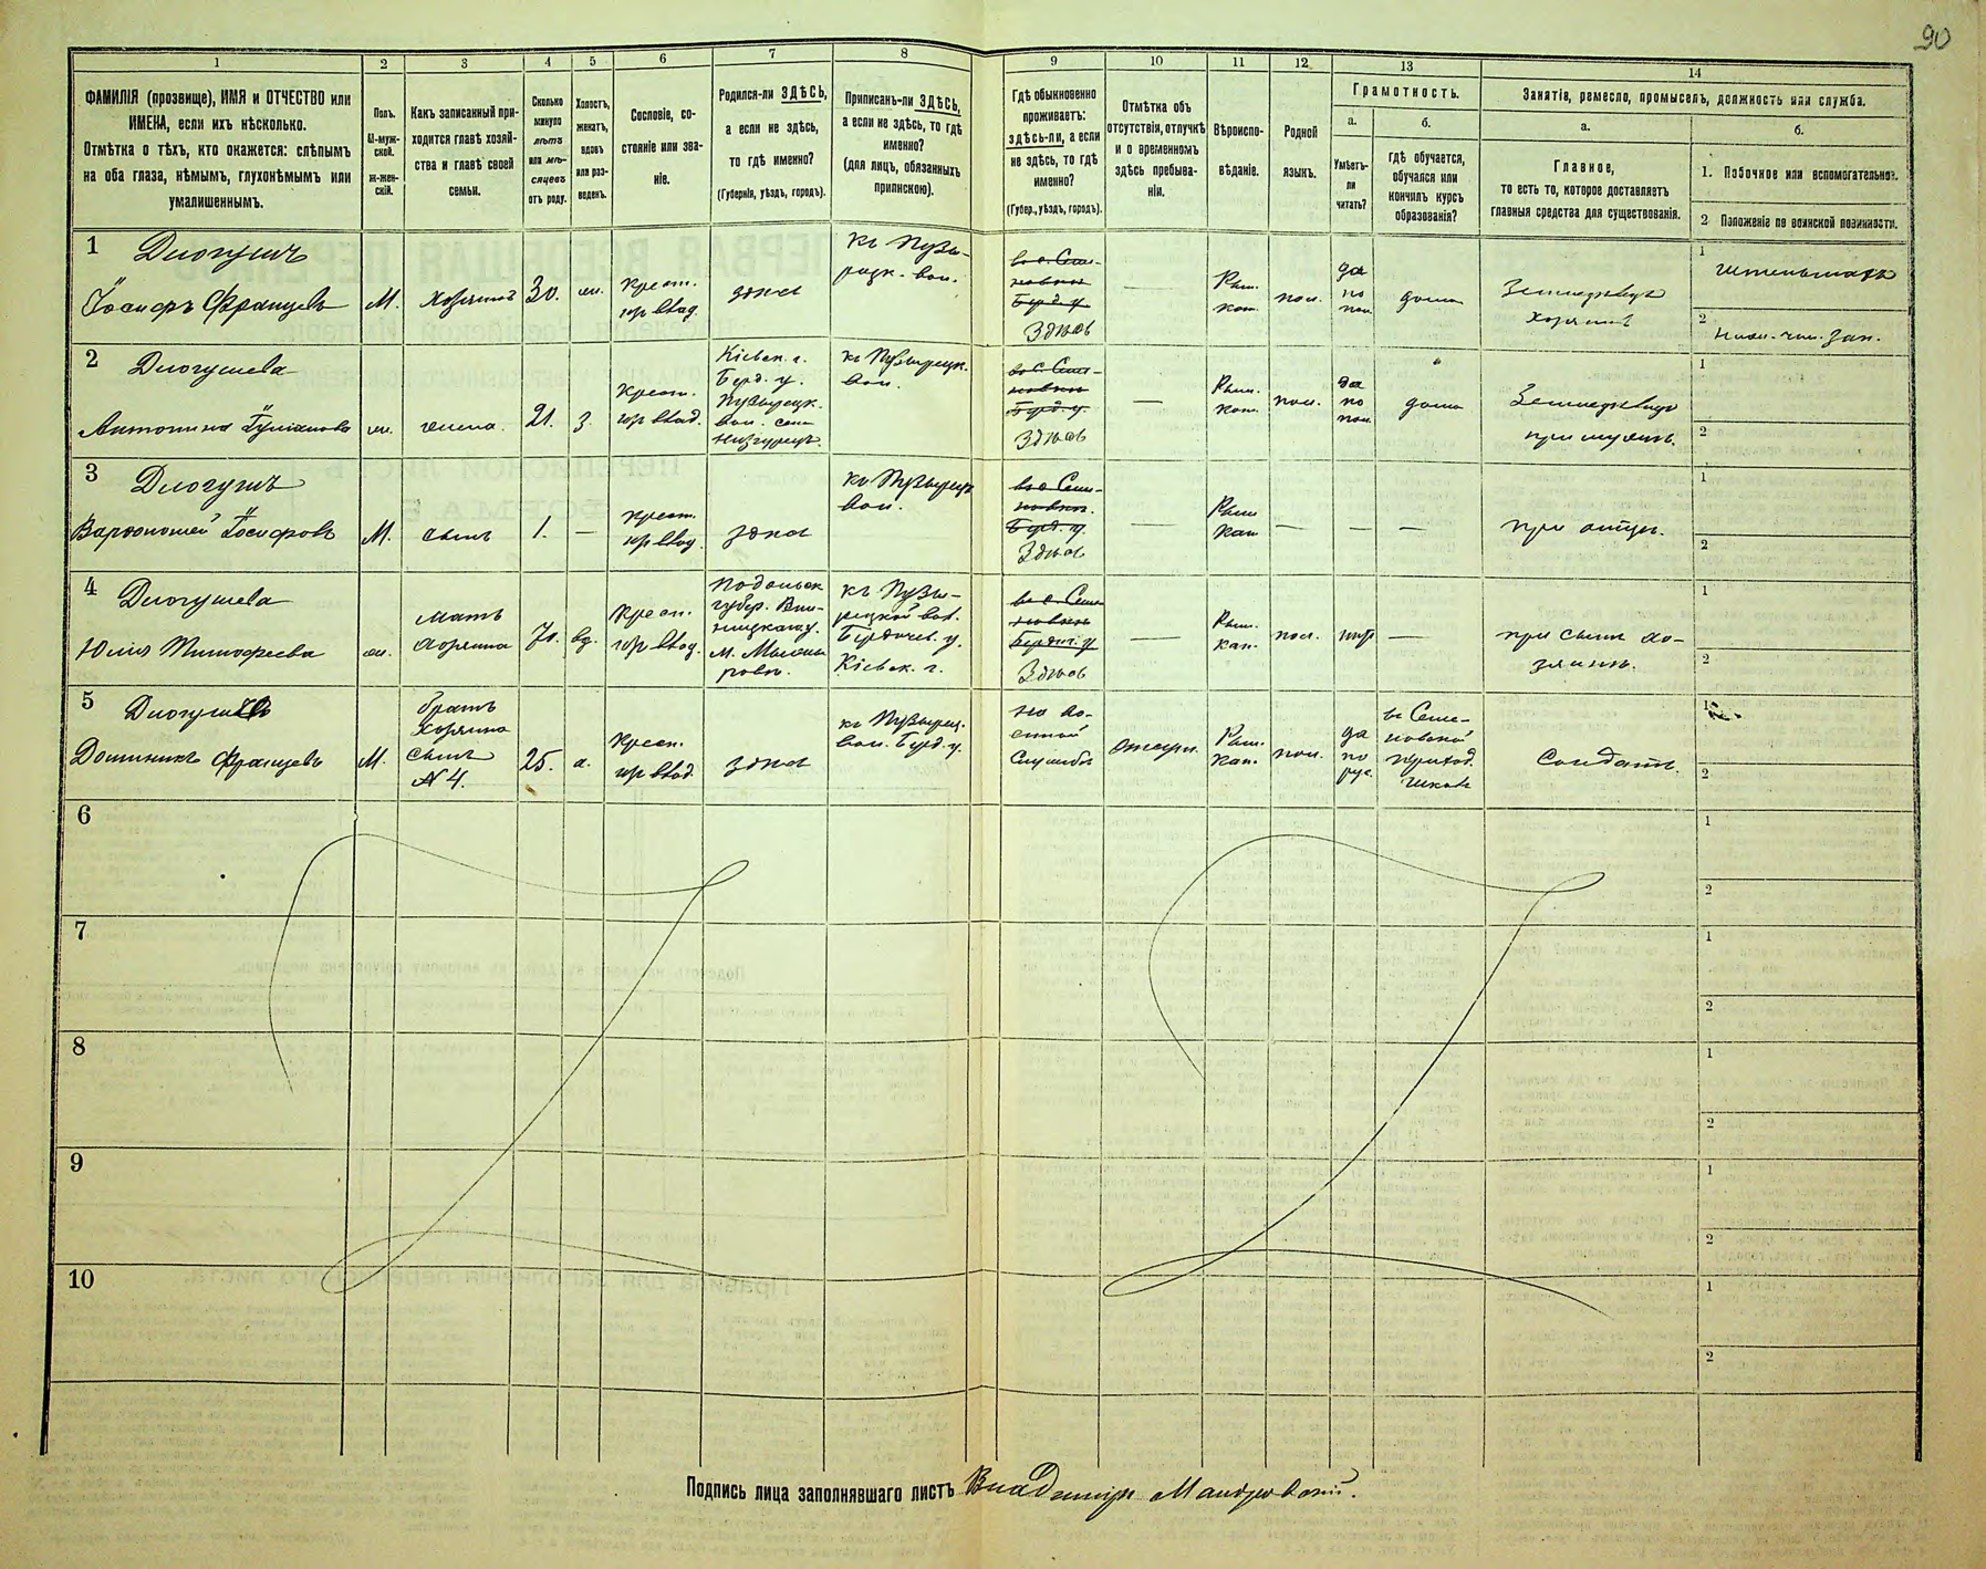 90
1 2 3 4 5 6 7 8 9 10 11 12 13 14
ФАМИЛІЯ (прозвище), ИМЯ и ОТЧЕСТВО или
ИМЕНА, если ихъ нѣсколько.
Отмѣтка о тѣхъ, кто окажется: слѣпымъ
на оба глаза, нѣмымъ, глухонѣмымъ или
умалишеннымъ.
Полъ.
М-муж-
ской.
Ж-жен-
скій.
Какъ записанный при-
ходится главѣ хозяй-
ства и главѣ своей
семьи.
Сколько
минуло
лѣтъ
или мѣ-
сяцевъ
отъ роду.
Холостъ,
женатъ,
вдовъ
или раз-
веденъ.
Сословіе, со-
стояніе или зва-
ніе.
Родился-ли ЗДѢСЬ,
а если не здѣсь,
то гдѣ именно?
(Губернія, уѣздъ, городъ).
Приписанъ-ли ЗДѢСЬ,
а если не здѣсь, то гдѣ
именно?
(для лицъ, обязанныхъ
припискою).
Гдѣ обыкновенно
проживаетъ:
здѣсь-ли, а если
не здѣсь, то гдѣ
именно?
(Губер., уѣздъ, городъ).
Отмѣтка объ
отсутствіи, отлучкѣ
и о временномъ
здѣсь пребыва-
ніи.
Вѣроиспо-
вѣданіе.
Родной
языкъ.
Грамотность.
а.
Умѣетъ-
ли
читать?
б.
Гдѣ обучается,
обучался или
кончилъ курсъ
образованія?
Занятіе, ремесло, промыселъ, должность или служба.
а.
Главное,
то есть то, которое доставляетъ
главныя средства для существованія.
б.
1. Побочное или вспомогательное.
2 Положеніе по воинской повинности.
1
Длогушъ
Іосифъ Францевъ
М.
Хозяинъ
30.
жн.
крест.
изъ влад.
здѣсь
къ Пузы-
рецк. вол.
въ с. Семе-
новкѣ
Берд. у.
Здѣсь
—
Рим.
кат.
пол.
да
по
пол.
дома
Земледѣлецъ
хозяинъ
1
2
нижн. чин. зап.
2
Длогушева
Антонина Іуліанова
жн.
жена.
21.
З.
крест.
изъ влад.
Кіевск. г.
Берд. у.
Пузырецк.
вол. село
Низгурецъ.
къ Пузырецк.
вол.
въ с. Семе-
новкѣ
Берд. у.
Здѣсь
—
Рим.
кат.
пол.
да
по
пол.
дома
Земледѣлецъ
при мужѣ.
1
2
3
Длогушъ
Варфоломей Іосифовъ
М.
сынъ
1.
—
крест.
изъ влад.
здѣсь
къ Пузырецк.
вол.
въ с. Семе-
новкѣ.
Берд. у.
Здѣсь
—
Рим.
кат.
—
—
—
при отцѣ.
1
2
4
Длогушева
Юлія Тимофеева
жн.
мать
хозяина
70.
вд.
крест.
изъ влад.
Подольск.
губер. Вин-
ницкаго у.
къ Пузы-
рецкой вол.
Бердичев. у.
Кіевск. г.
въ с. Семе-
новкѣ
Бердич. у.
Здѣсь
—
Рим.
кат.
пол.
нѣтъ
—
при сынѣ хо-
зяинѣ.
1
2
5
Доминикъ Францевъ
М.
братъ
хозяина
сынъ
№ 4.
25.
х.
крест.
изъ влад.
здѣсь
къ Пузырец.
вол. Берд. у.
на во-
енной
службѣ
Рим.
кат.
пол.
да
по
рус.
въ Семе-
новской
приход.
школѣ
Солдатъ.
1
2
6
1
2
7
1
2
8
1
2
9
1
2
10
1
2
Подпись лица заполнявшаго листъ Владиміръ